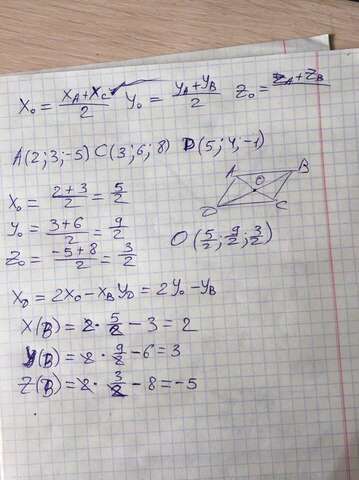 X₀ = (X_A + X_C)/2 Y₀ = (Y_A + Y_B)/2 Z₀ = Z_A + Z_B
A(2;3;-5) C(3;6;8) D(5;4;-1)
X₀ = (2+3)/2 = 5/2
A B O D C
Y₀ = (3+6)/2 = 9/2
Z₀ = (-5+8)/2 = 3/2
O(5/2; 9/2; 3/2)
X_D = 2X₀ - X_B Y_D = 2Y₀ - Y_B
X(B) = 2 · 5/2 - 3 = 2
Y(B) = 2 · 9/2 - 6 = 3
Z(B) = 2 · 3/2 - 8 = -5